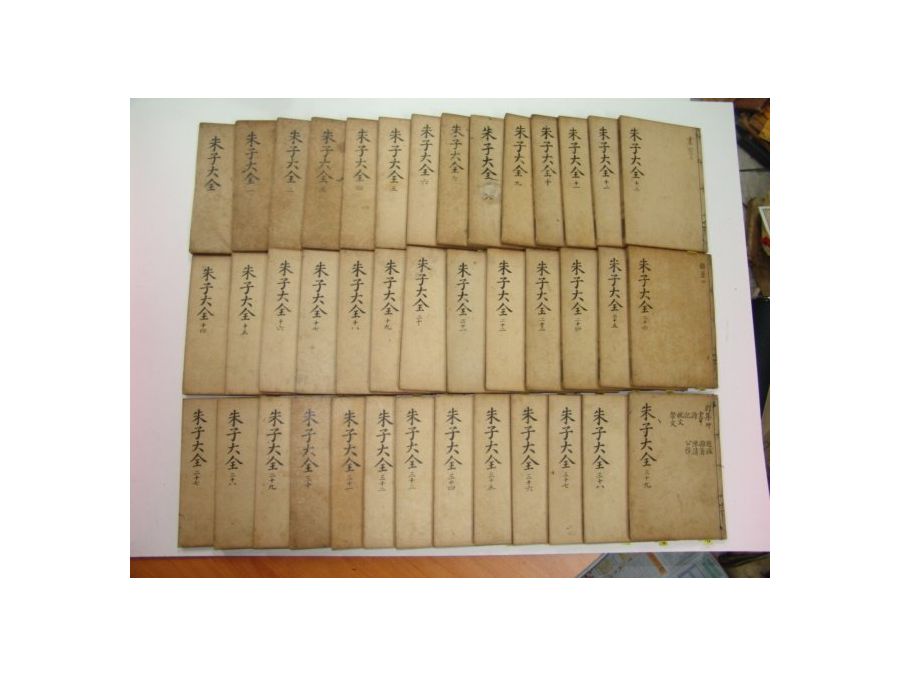 朱子大全
朱子大全 一
朱子大全 二
朱子大全 三
朱子大全 四
朱子大全 五
朱子大全 六
朱子大全 七
朱子大全 八
朱子大全 九
朱子大全 十
朱子大全 十一
朱子大全 十二
朱子大全 十三
朱子大全 十四
朱子大全 十五
朱子大全 十六
朱子大全 十七
朱子大全 十八
朱子大全 十九
朱子大全 二十
朱子大全 二十一
朱子大全 二十二
朱子大全 二十三
朱子大全 二十四
朱子大全 二十五
朱子大全 二十六
朱子大全 二十七
朱子大全 二十八
朱子大全 二十九
朱子大全 三十
朱子大全 三十一
朱子大全 三十二
朱子大全 三十三
朱子大全 三十四
朱子大全 三十五
朱子大全 三十六
朱子大全 三十七
朱子大全 三十八
朱子大全 三十九
詩
記
祝文
祭文